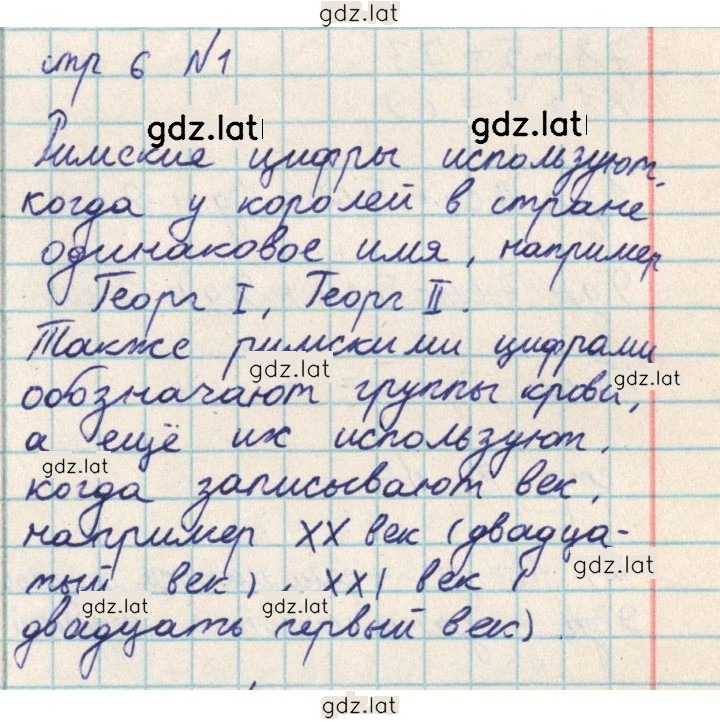 gdz.lat
стр 6 №1
gdz.lat gdz.lat
Римские цифры используют,
когда у королей в стране
одинаковое имя, например
Георг I, Георг II.
Также римскими цифрами
gdz.lat gdz.lat
ообозначают группы крови,
а ещё их используют,
gdz.lat
когда записывают век,
например XX век (двадца-
gdz.lat
тый век), XXI век (
gdz.lat gdz.lat
двадцать первый век).
gdz.lat